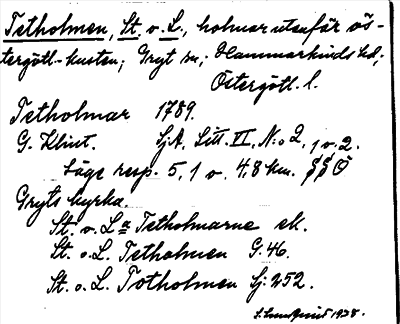 Tetholmen, St. o. L., holmar utanför ös-
tergötl-kusten; Gryt sn.; Hammarkinds hd;
Östergötl. l.
Tetholmar 1789.
G. Klint. SjA, Litt. VI, N:o 2, 1 o. 2.
Läge resp. 5,1 o. 4,8 km. SSÖ
Gryts kyrka.
St. o. La Tetholmarne ek.
St. o. L. Tetholmen G. 46.
St. o. L. Totholmen Sj. 252.
1938.